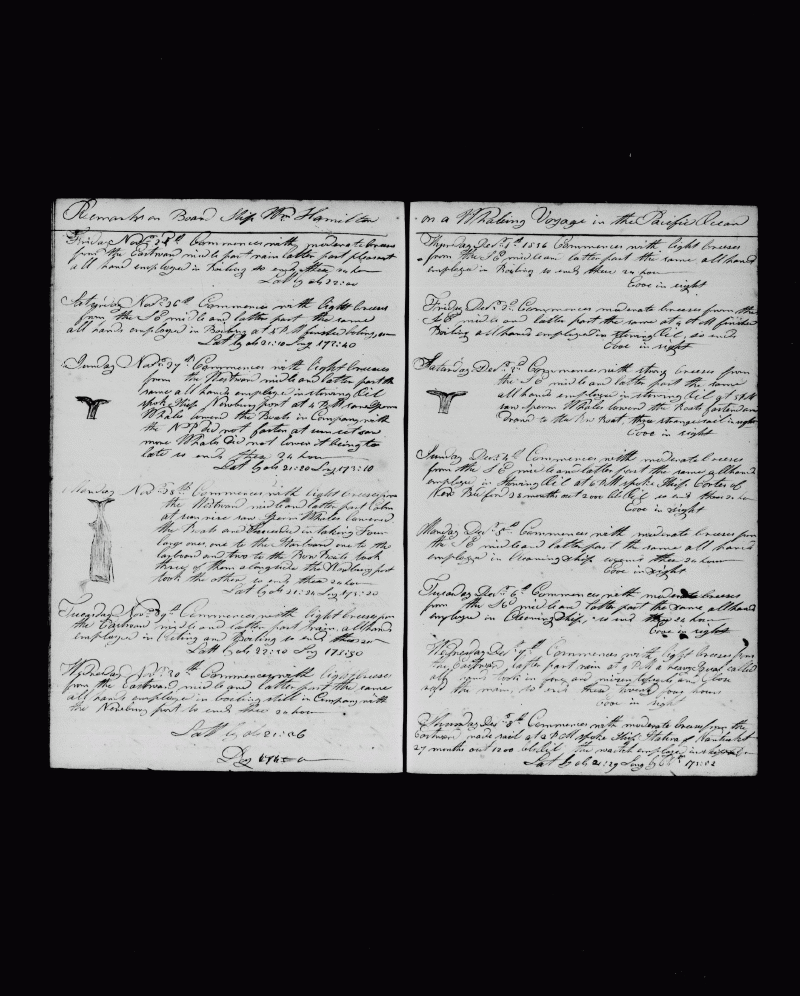 Remarks on Board Ship Wm Hamilton
Friday Novr 25th Commences with moderate breeses
from the Eastward midle part rain latter part pleasant
all hand employed in Boiling so ends these 24 hour
Latt by ob 22:00
Saturday Novr 26th Commences with light breeses
from the SE midle and latter part the same
all hands employed in Boiling at 5 PM finished boiling
Latt by ob 21:10 Lng 173:40
Sunday Novr 27th Commences with light breeses
from the Westward midle and latter part the
same all hands employed in stowing Oil
spoke Ship Newburyport at 4 PM saw Sperm
Whales lowerd the Boats in Company with
the NP did not fasten at sunset saw
more Whales Did not lower it being to
late so ends these 24 hour
Latt by ob 21:20 Lng 173:10
Monday Novr 28th Commences with light breeses from
the Westward midle and latter part Calm
at sun rise saw Sperm Whales lowered
the Boats and succeeded in taking Four
large ones one to the Starboard one to the
larboard and two to the Bow Boats took
three of them alongside the Newburyport
took the other so ends these 24 hour
Latt by ob 21:26 Lng 173:20
Tuesday Novr 29th Commences with light breeses from
the Eastward midle and latter part rain all hands
employed in Cuting and Boiling so ends these 24
Latt by ob 22:10 Lng 173:50
Wednesday Novr 30th Commences with light breeses
from the Eastward midle and latter part the same
all hands employed in Boiling still in Company with
the Newburyport so ends these 24 hour
Latt by ob 21:06
on a Whaling Voyage in the Pacific Ocean
Thursday Decr 1st 1836 Commences with light breeses
from the SE midle and latter part the same all hands
employed in Boiling so ends these 24 hour
Eooe in sight
Friday Decr 2d Commences moderate breeses from the
SE midle and latter part the same at 9 AM finished
Boiling all hand employed in stowing Oil, so ends
Eooe in sight
Saturday Decr 3d Commences with strong breeses from
the SE midle and latter part the same
all hands employed in stowing Oil at 5 PM
saw Sperm Whales lowerd the Boats fastend and
Drawd to the Bow Boat, three strange sail in sight
Eooe in sight
Sunday Decr 4th Commences with moderate breeses
from the SE midle and latter part the same all hand
employed in Stowing Oil at 6 PM spoke Ship Cortes of
New Bedford 28 months out 2000 bbls Oil so ends these 24 hour
Eooe in sight
Monday Decr 5th Commences with moderate breeses from
the SE midle and latter part the same all hands
employed in Cleaning ship so ends these 24 hour
Eooe in sight
Tuesday Decr 6th Commences with moderate breeses
from the SE midle and latter part the same all hand
employed in Cleaning Ship, so end these 24 hour
Eooe in sight
Wednesday Decr 7th Commences with light breeses from
the Eastward, latter part rain at 9 PM a heavy Squal called
all hands took in jeng and mizen topsails and Close
reeft the main, so end these twenty four hours
Eooe in sight
Thursday Decr 8th Commences with moderate breeses from the
Eastward made sail at 2 PM spoke Ship Statira of Nantucket
27 months out 1200 bbls Oil the watch employed in
Latt by ob 21:29 Long by Chr 173:02